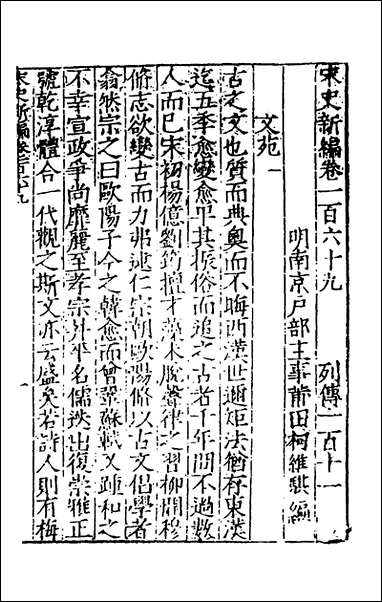 宋史新編卷一百六十九 列傳一百十一
明南京戶部主事莆田柯維騏編
文苑一
古之文也質而典奧而不晦西漢世邇矩法猶存東漢
迄五季愈變愈卑其振俗而追之古者千年間不過數
人而已宋初楊億劉筠擅才藻未脫聲律之習柳開穆
脩志欲變古而力弗逮仁宗朝歐陽脩以古文倡學者
翕然宗之曰歐陽子今之韓愈而曾鞏蘇軾又踵和之
不幸宣政爭尚靡麗至孝宗升平名儒迭出復崇雅正
號乾淳體合一代觀之斯文亦云盛矣若詩人則有梅
宋史新編卷一百六十九 一